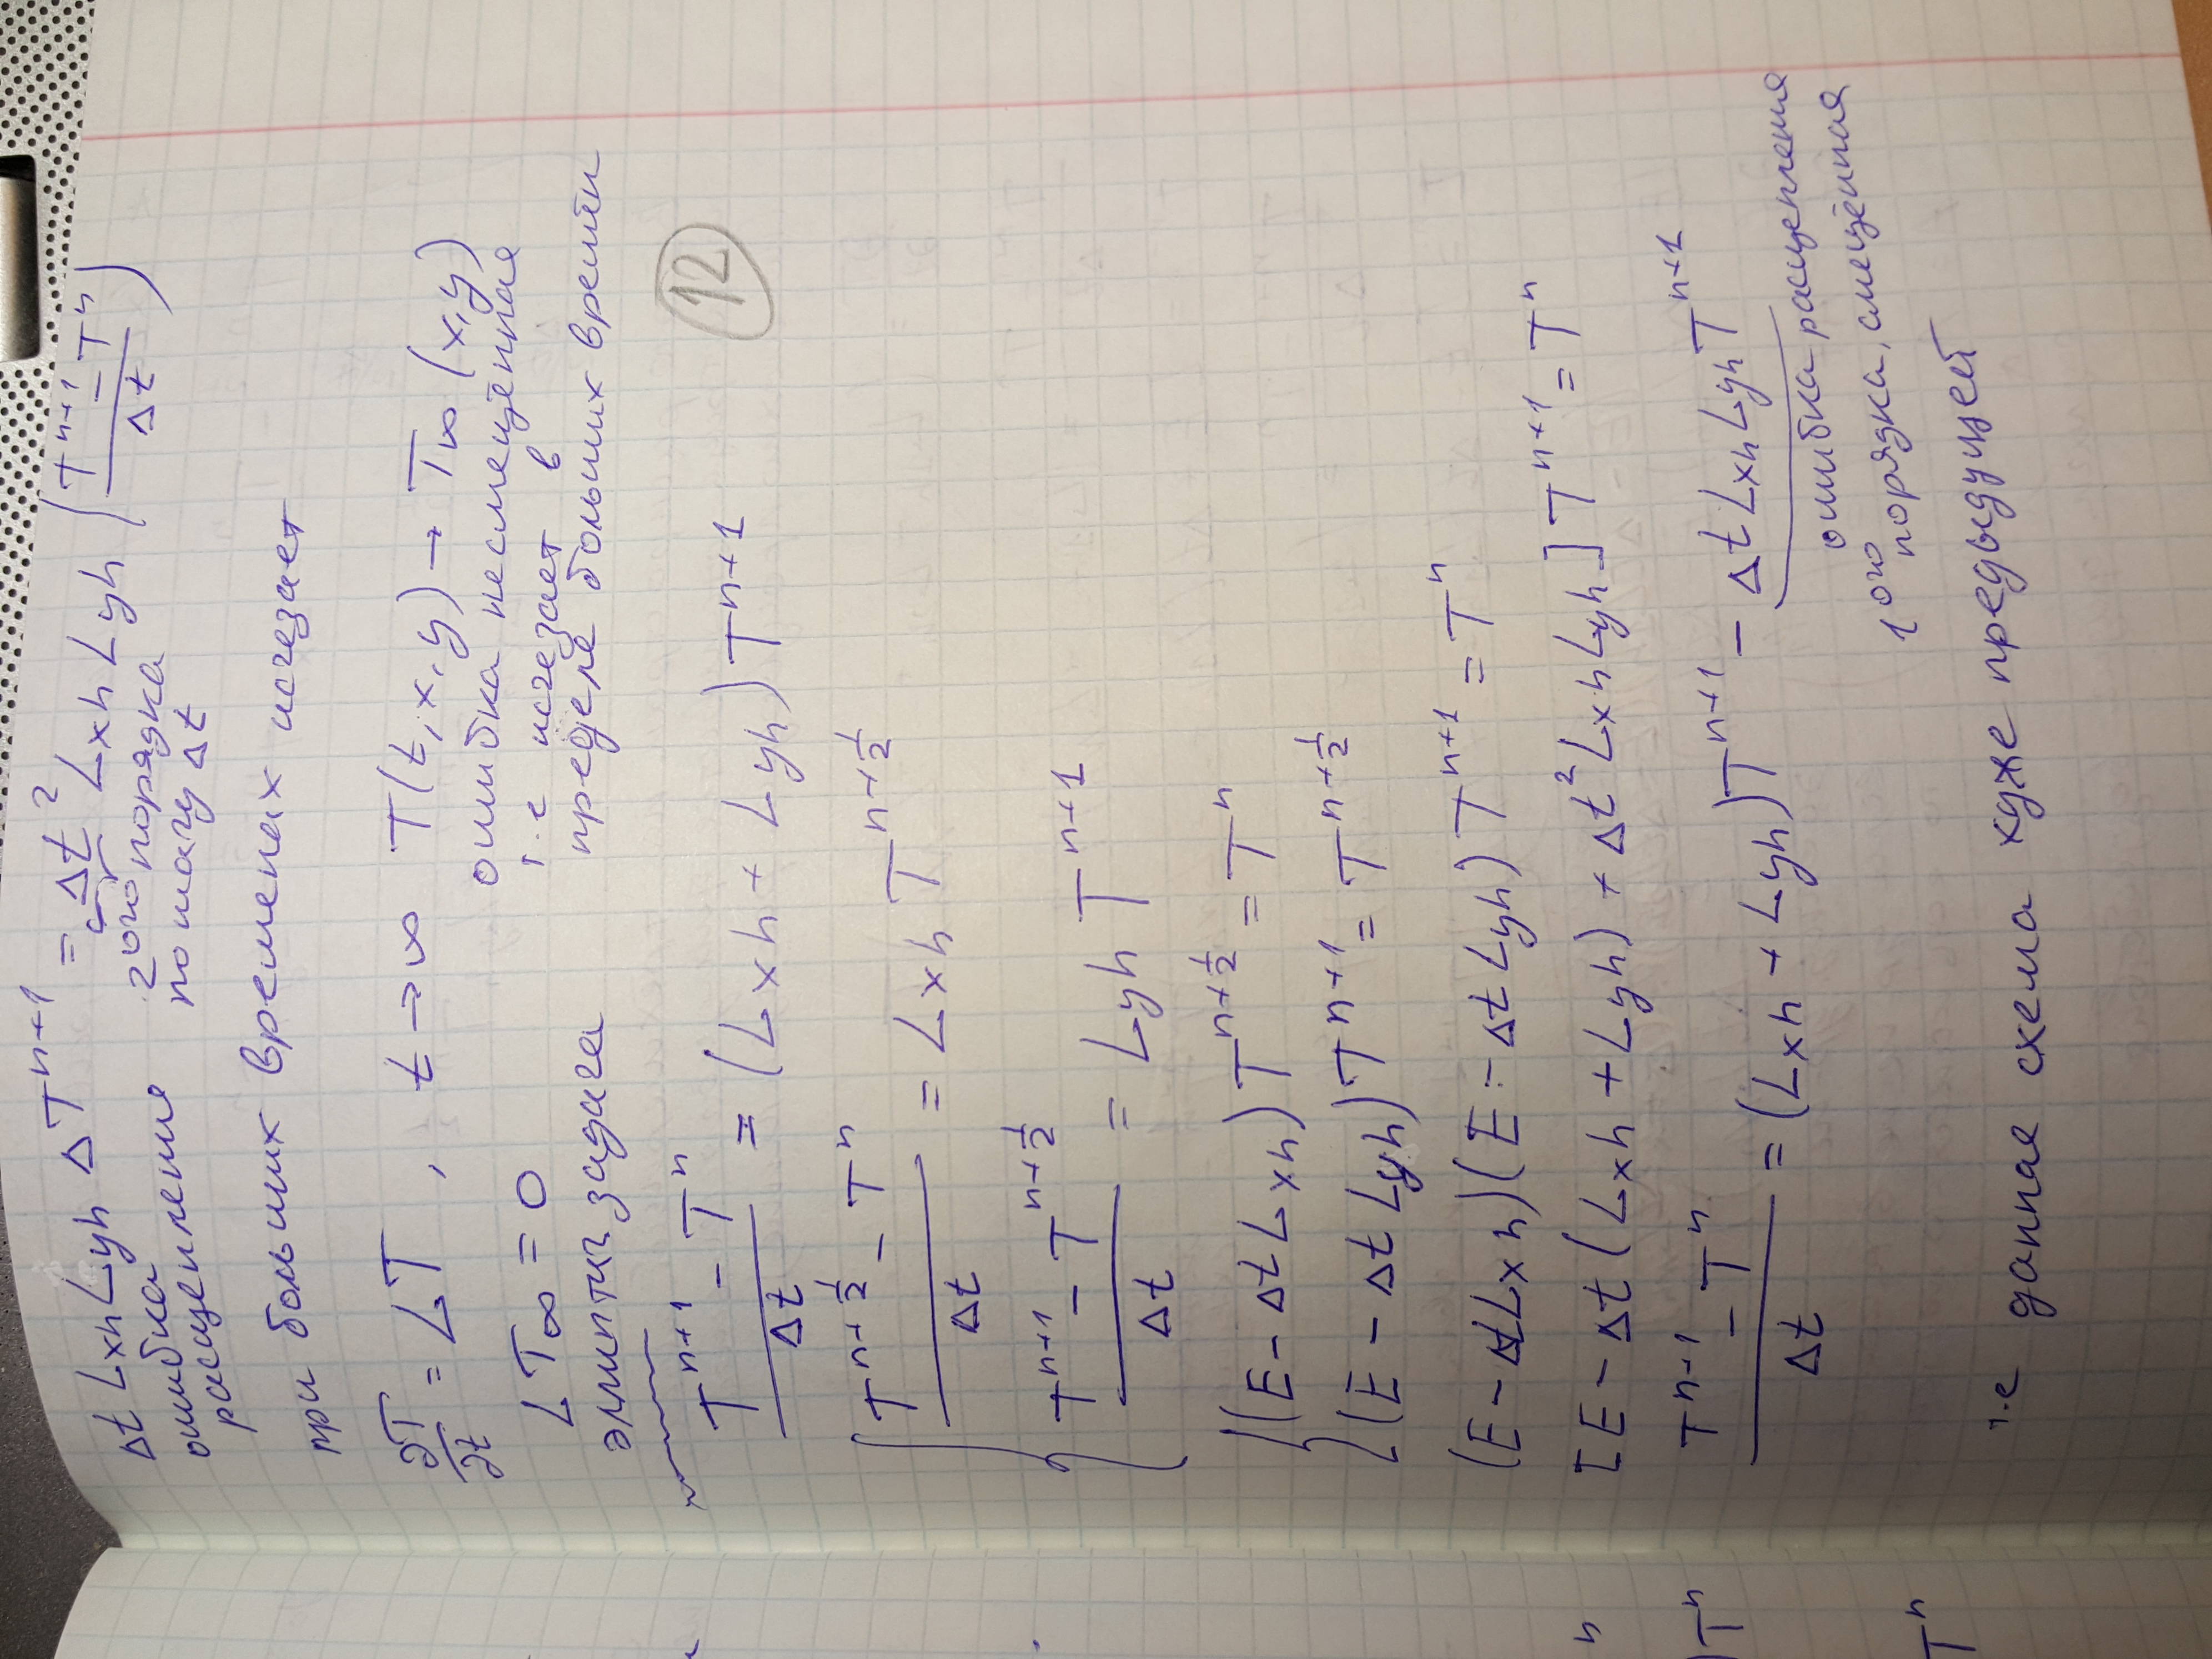 Δt Lxh Lyh ΔT^{n+1} = Δt² Lxh Lyh ((T^{n+1} − T^n)/Δt)
ошибка расщепления
2ого порядка
по шагу Δt
при больших временах исчезает
∂T/∂t = LT, t → ∞ T(t,x,y) → T∞(x,y)
LT∞ = 0
эллиптич задача
ошибка несмещённая
т.е исчезает в
пределе больших времён
(T^{n+1} − T^n)/Δt = (Lxh + Lyh)T^{n+1}
12
(T^{n+1/2} − T^n)/Δt = Lxh T^{n+1/2}
(T^{n+1} − T^{n+1/2})/Δt = Lyh T^{n+1}
(E − Δt Lxh) T^{n+1/2} = T^n
(E − Δt Lyh) T^{n+1} = T^{n+1/2}
(E − Δt Lxh)(E − Δt Lyh) T^{n+1} = T^n
[E − Δt (Lxh + Lyh) + Δt² Lxh Lyh] T^{n+1} = T^n
(T^{n+1} − T^n)/Δt = (Lxh + Lyh)T^{n+1} − Δt Lxh Lyh T^{n+1}
ошибка расщепления
1ого порядка, смещённая
т.е данная схема хуже предыдущей
n
)T^n
T^n